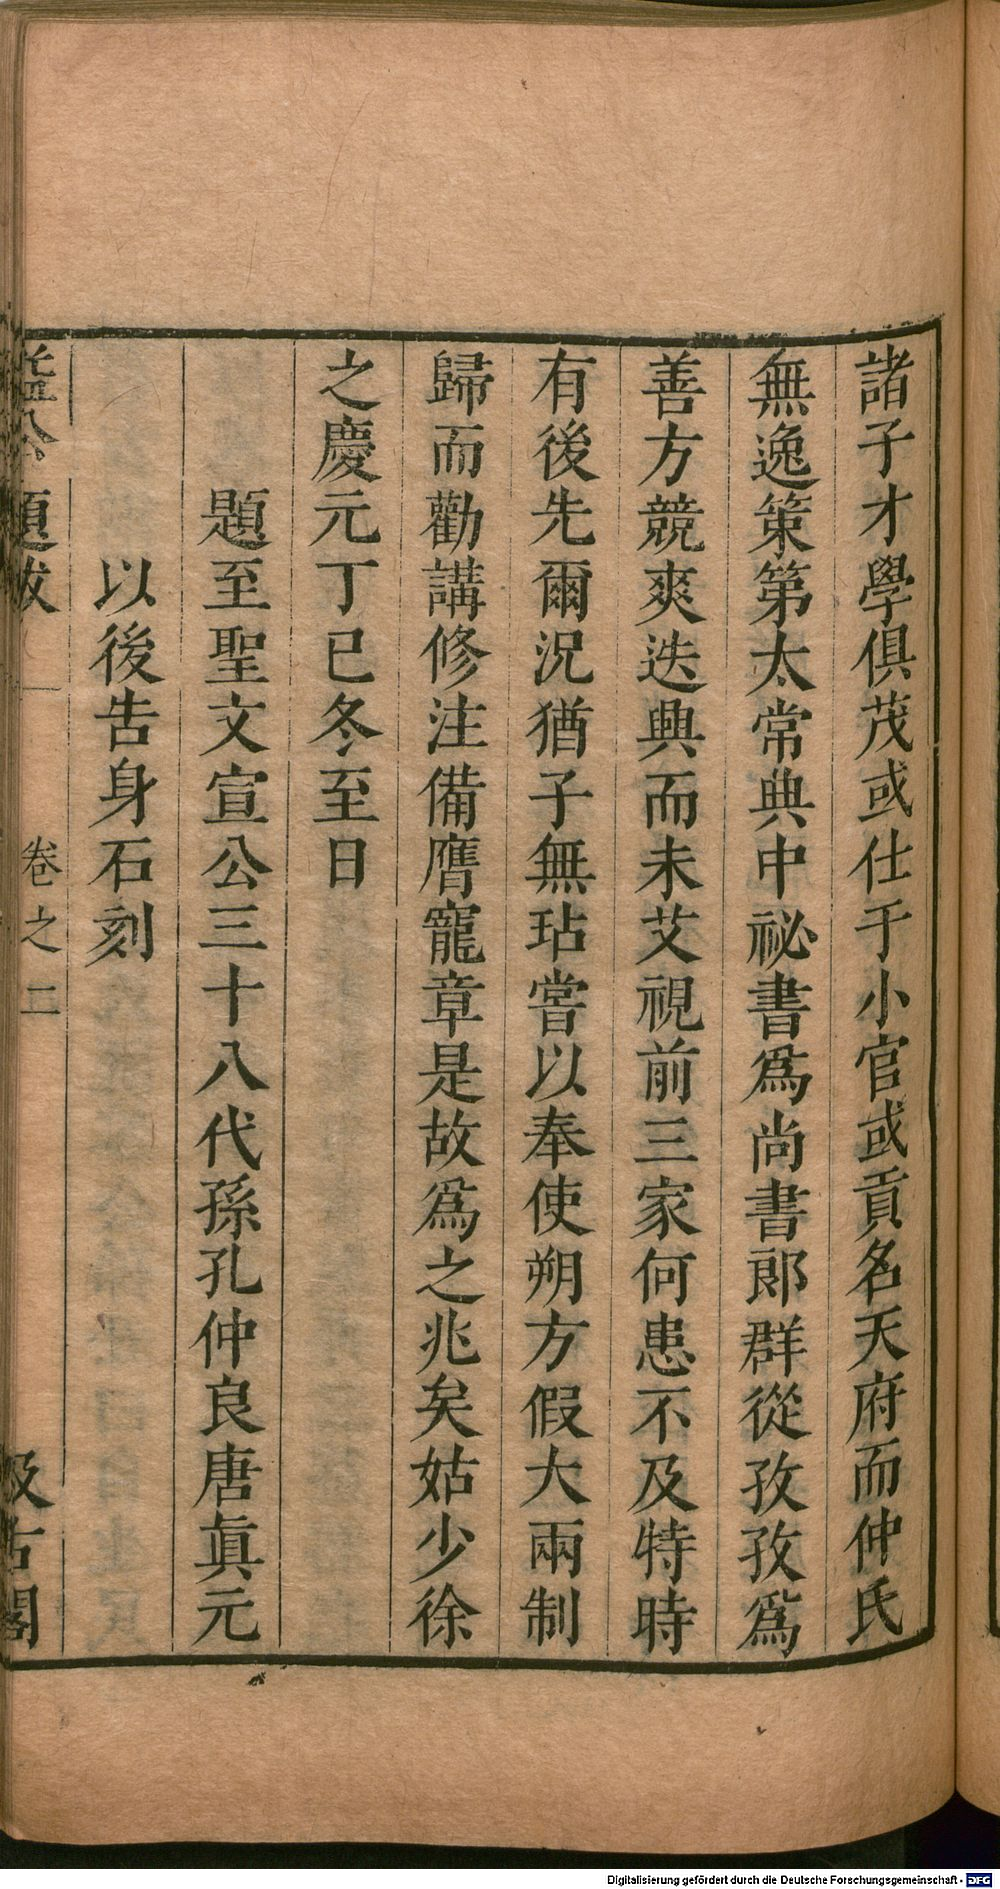 諸子才學俱茂或仕于小官或貢名天府而仲氏
無逸策第太常典中祕書爲尚書郞群從孜孜爲
善方競爽迭興而未艾視前三家何患不及特時
有後先爾況猶子無玷嘗以奉使朔方假大兩制
歸而勸講修注備膺寵章是故爲之兆矣姑少徐
之慶元丁巳冬至日
題至聖文宣公三十八代孫孔仲良唐眞元
以後告身石刻
益公題跋
卷之二
汲古閣
Digitalisierung gefördert durch die Deutsche Forschungsgemeinschaft - DFG